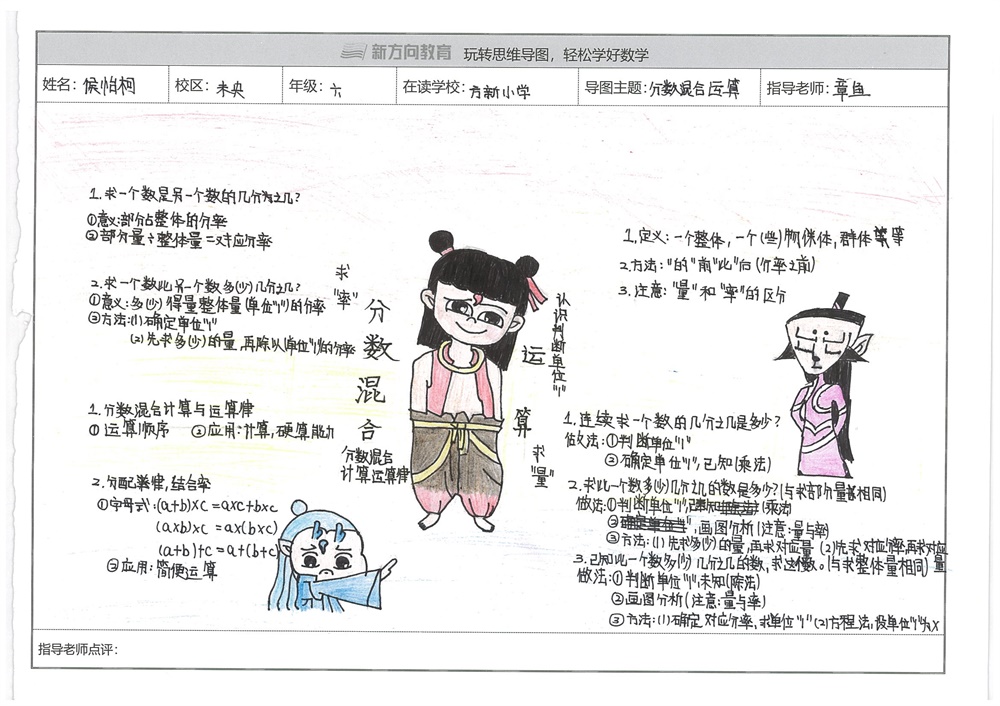 新方向教育 玩转思维导图，轻松学好数学
姓名：侯怡柯 校区：未央 年级：六 在读学校：方新小学 导图主题：分数混合运算 指导老师：章鱼
1.求一个数是另一个数的几分为之几？
①意义：部分占整体的分率
②部分量÷整体量=对应分率
2.求一个数比另一个数多(少)几分之几？
①意义：多(少)得量整体量(单位"1")的分率
②方法：(1)确定单位"1"
(2)先求多(少)的量，再除以单位"1"的分率
求
"率"
分
数
混
合
运
算
认识判断单位"1"
1.定义：一个整体，一个(些)物体，群体等
2.方法："的"前"比"后(分率之前)
3.注意："量"和"率"的区分
1.分数混合计算与运算律
①运算顺序 ②应用：计算，硬算能力
分数混合
计算运算律
2.分配律，结合率
①字母式：(a+b)×c=a×c+b×c
(a×b)×c=a×(b×c)
(a+b)+c=a+(b+c)
②应用：简便运算
求
"量"
1.连续求一个数的几分之几是多少？
做法：①判断单位"1"
②确定单位"1"，已知(乘法)
2.求比一个数多(少)几分之几的数是多少？(与求部分量相同)
做法：①判断单位"1"，已知(乘法)
②画图分析(注意：量与率)
③方法：(1)先求多(少)的量，再求对应量 (2)先求对应率，再求对应量
3.已知比一个数多(少)几分之几的数，求这个数。(与求整体量相同)
做法：①判断单位"1"，未知(除法)
②画图分析(注意：量与率)
③方法：(1)确定对应分率，求单位"1" (2)方程法，设单位"1"为X
指导老师点评：